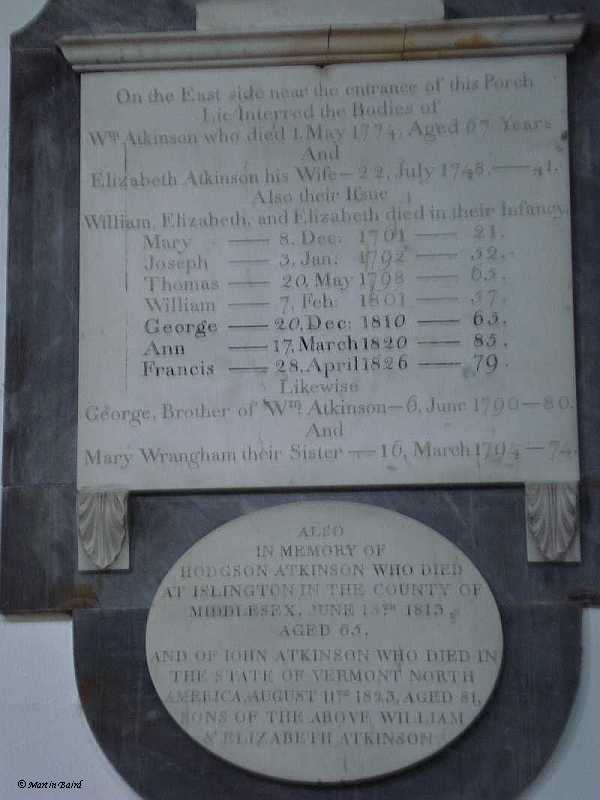 On the East side near the entrance of this Porch
Lie Interred the Bodies of
Wm Atkinson who died 1, May 1774, Aged 67 Years
And
Elizabeth Atkinson his Wife — 22, July 1748. — 41.
Also their Issue
William, Elizabeth, and Elizabeth died in their Infancy,
Mary — 8, Dec: 1761 — 21.
Joseph — 3, Jan: 1792 — 52.
Thomas — 20, May 1798 — 65.
William — 7, Feb: 1801 — 57.
George — 20, Dec: 1810 — 65.
Ann — 17, March 1820 — 85.
Francis — 28, April 1826 — 79.
Likewise
George, Brother of Wm Atkinson — 6, June 1790 — 80.
And
Mary Wrangham their Sister — 16, March 1794 — 74.
ALSO
IN MEMORY OF
HODGSON ATKINSON WHO DIED
AT ISLINGTON IN THE COUNTY OF
MIDDLESEX, JUNE TH 1813,
AGED 65,
AND OF IOHN ATKINSON WHO DIED IN
THE STATE OF VERMONT NORTH
AMERICA, AUGUST 11TH 1823, AGED 81,
SONS OF THE ABOVE WILLIAM
& ELIZABETH ATKINSON
© Martin Baird